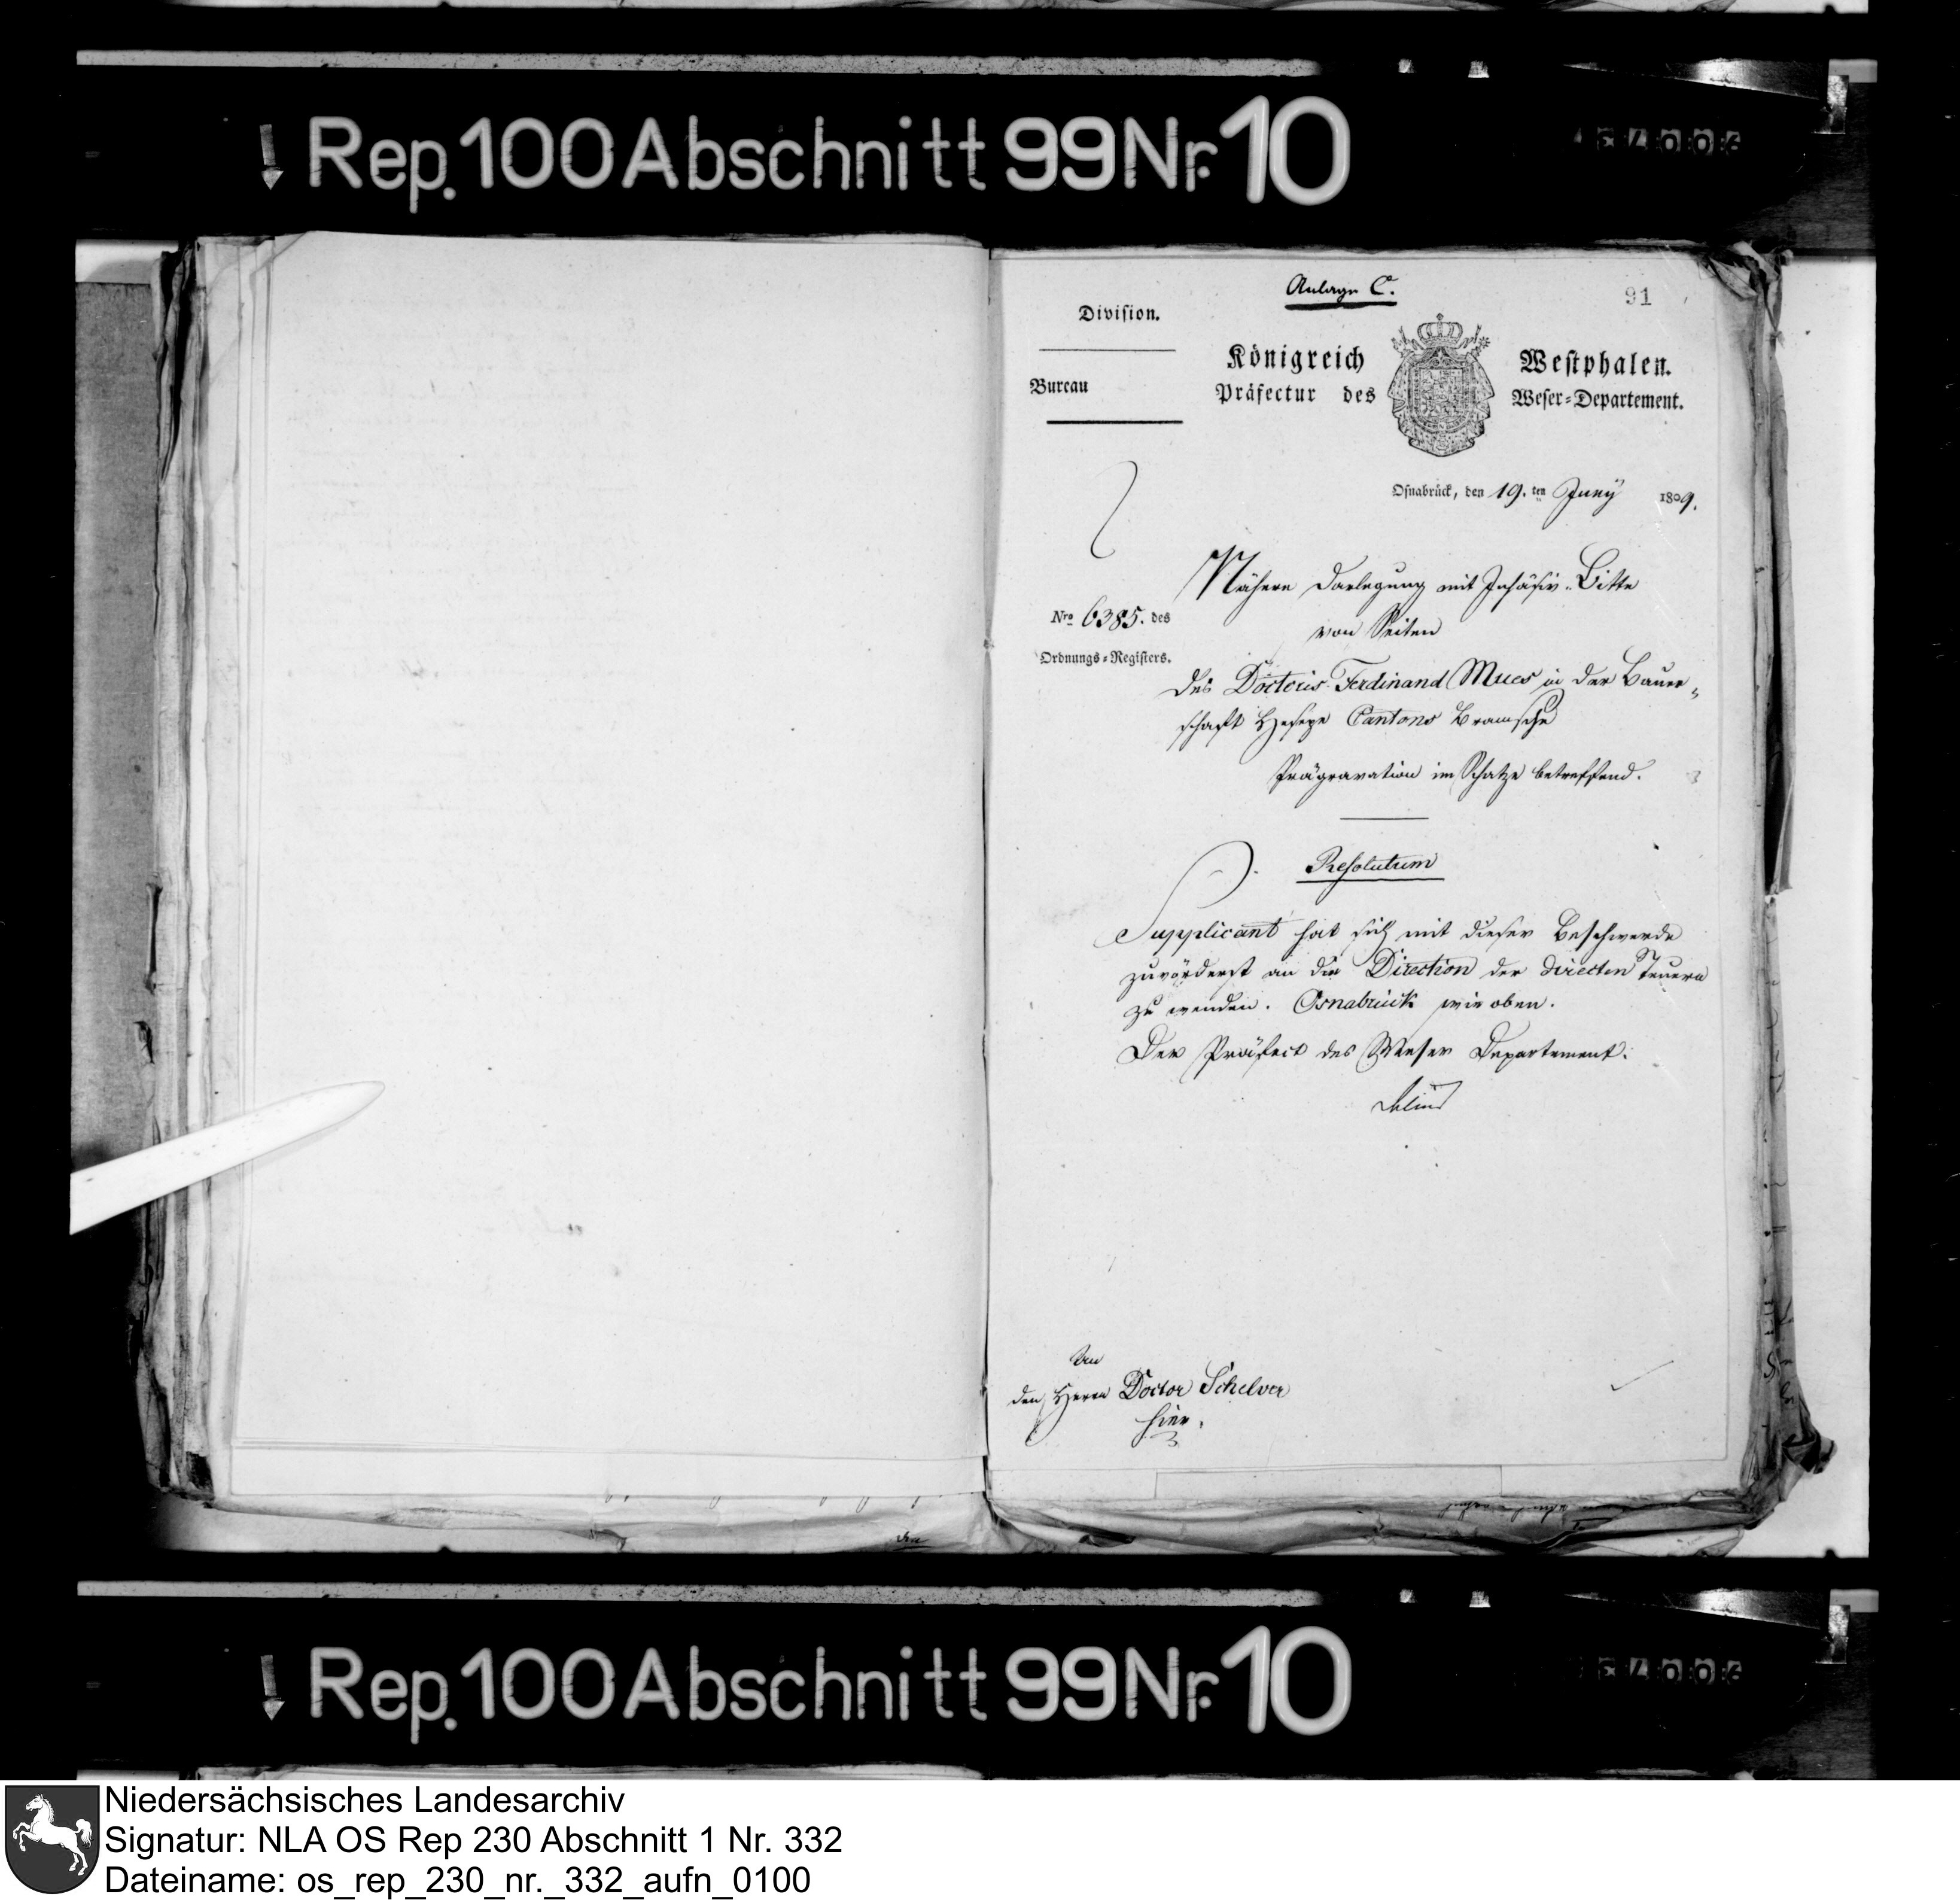 Rep. 100 Abschnitt 99 Nr. 10
Anlage C.
91
Diviſion.
Königreich Weſtphalen.
Bureau
Präfectur des Weſer-Departement.
Oſnabrück, den 19. ten Juny 1809.
Nähere Darlegung mit Inhäsiv-Bitte
von Seiten
Nro 6385. des
Ordnungs-Regiſters.
des Doctoris Ferdinand Mues in der Bauer-
schaft Hesepe Cantons Bramsche
Prägravation im Schatze betreffend.
Resolutum
Supplicant hat sich mit dieser Beschwerde
zuvörderst an die Direction der directen Steuern
zu wenden. Osnabrück wie oben.
Der Präfect des Weser Departement.
An
den Herrn Doctor Schelver
hier.
Rep. 100 Abschnitt 99 Nr. 10
Niedersächsisches Landesarchiv
Signatur: NLA OS Rep 230 Abschnitt 1 Nr. 332
Dateiname: os_rep_230_nr._332_aufn_0100